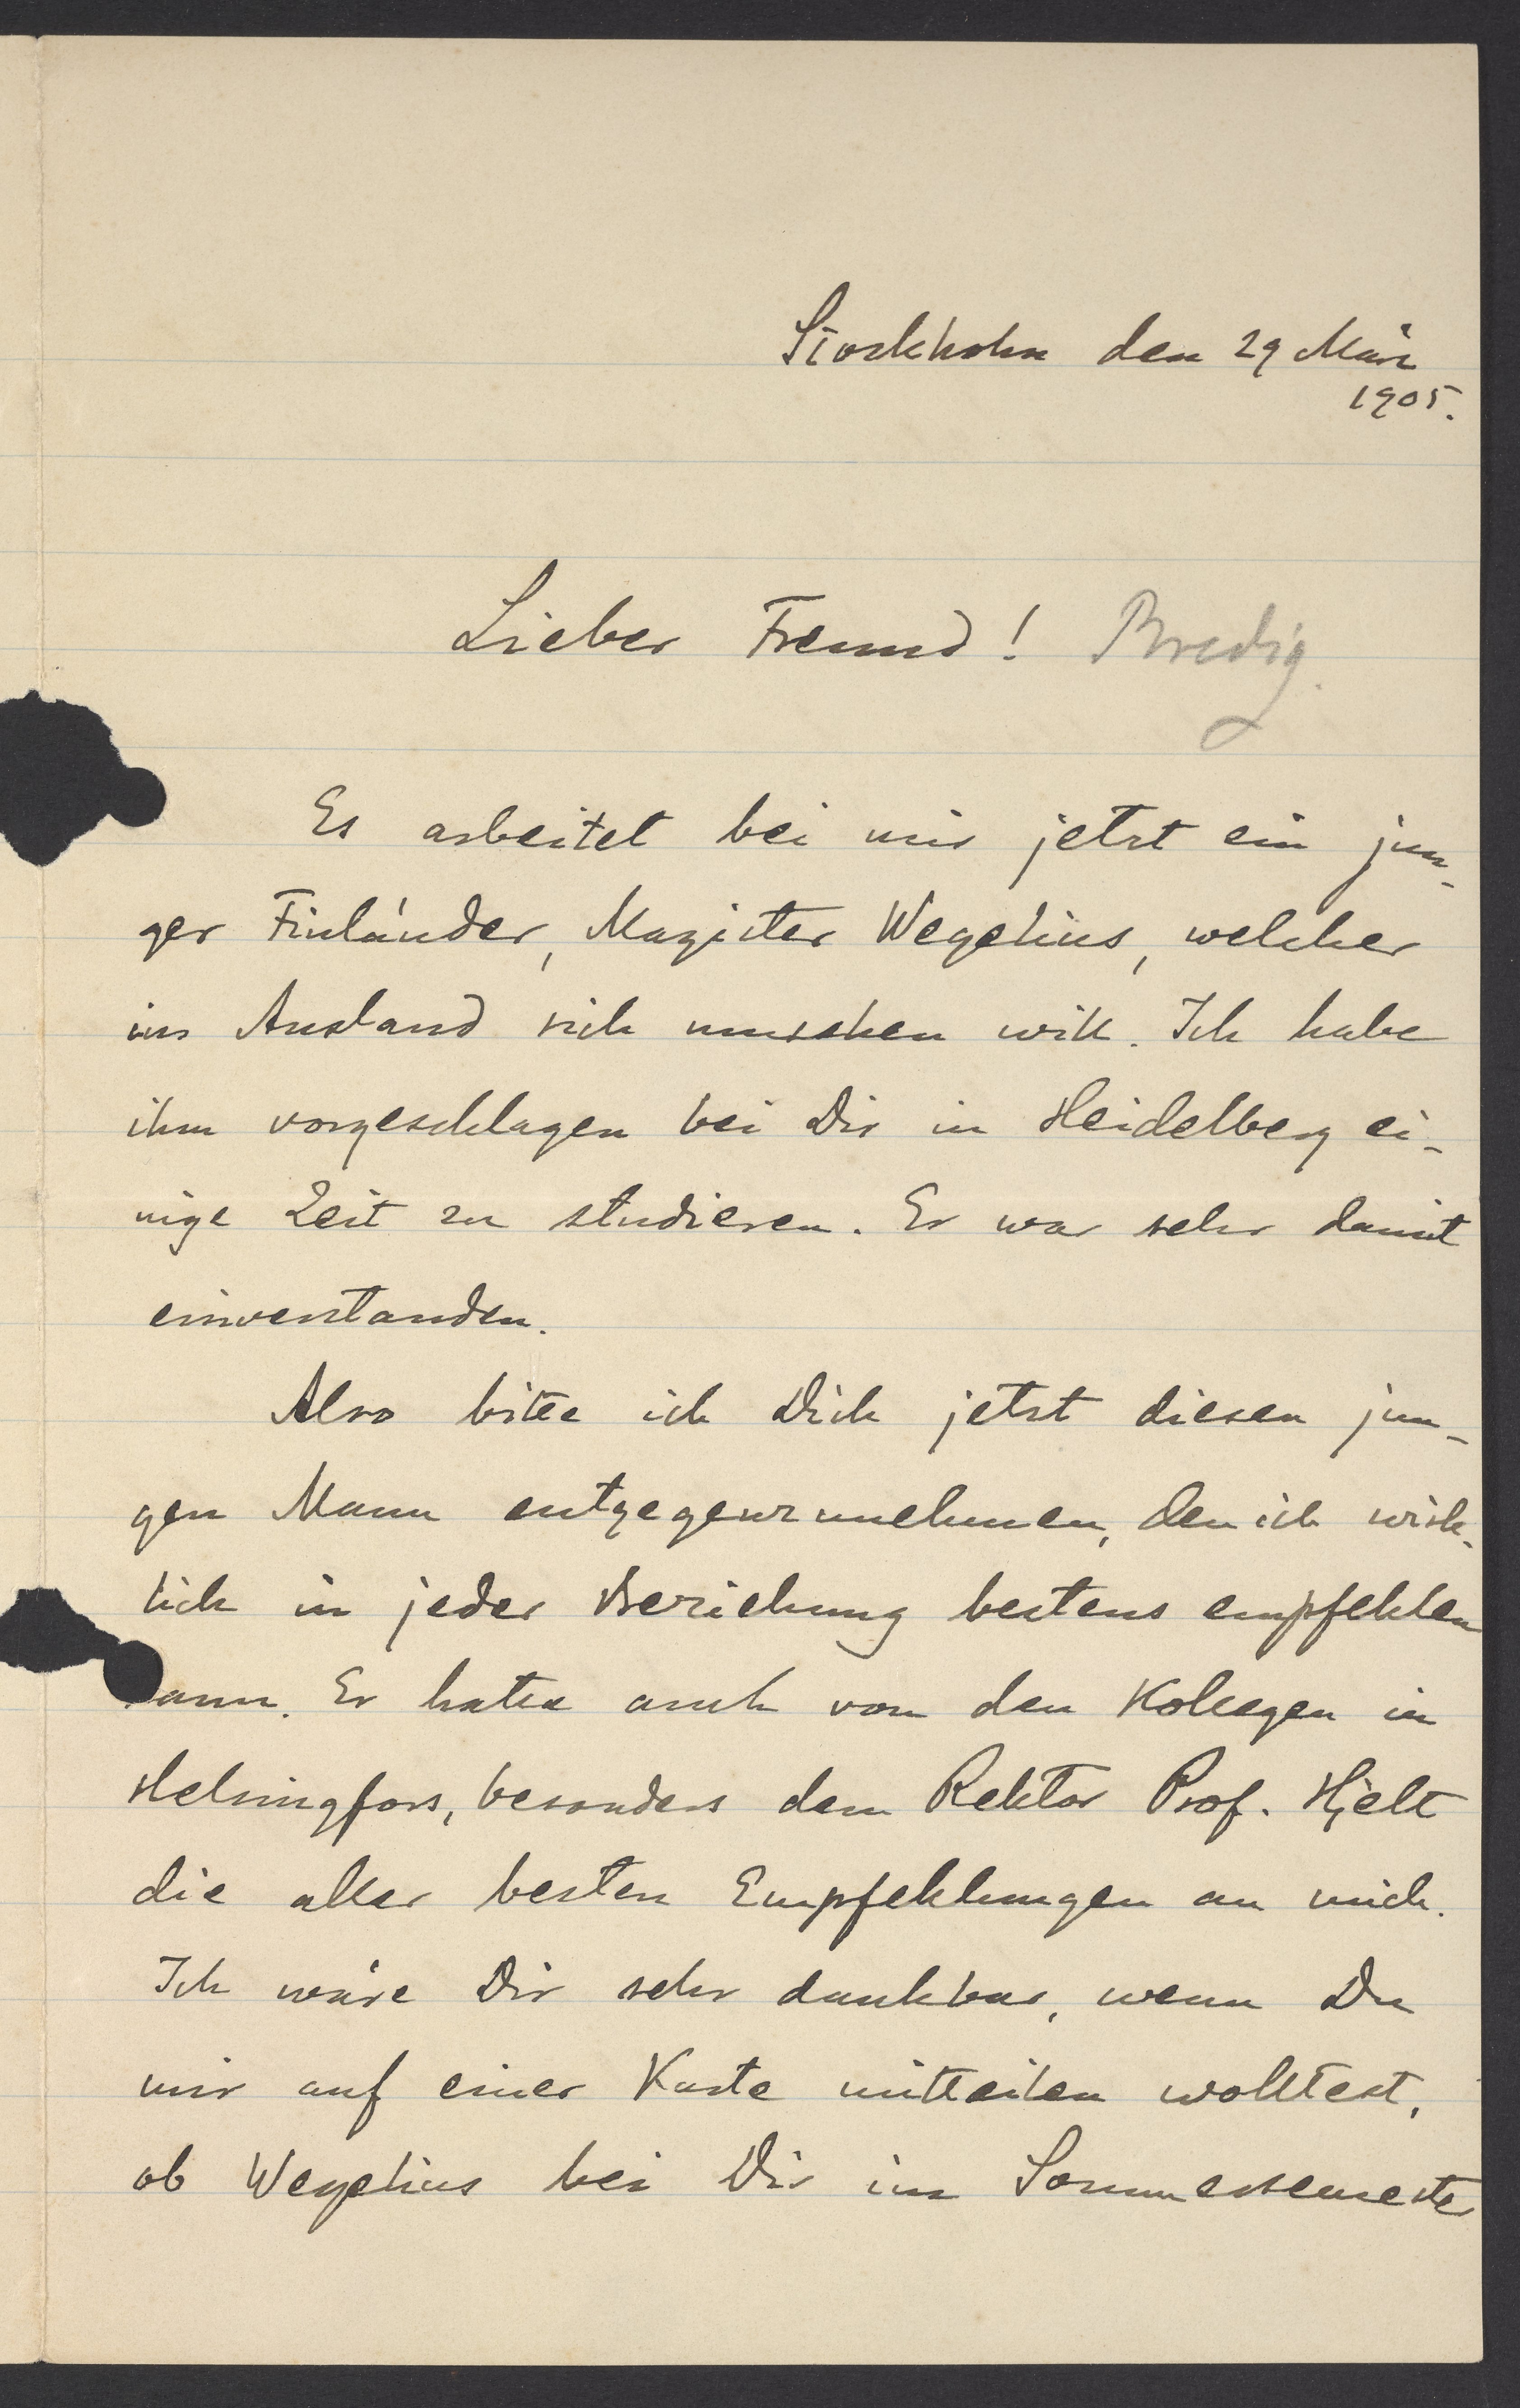 Stockholm den 29 März
1905.
Lieber Freund! Bredig.
Es arbeitet bei mir jetzt ein jun-
ger Finländer, Magister Wegelius, welcher
im Ausland sich umsehen will. Ich habe
ihm vorgeschlagen bei Dir in Heidelberg ei-
nige Zeit zu studieren. Er war sehr damit
einverstanden.
Also bitte ich Dich jetzt diesen jun-
gen Mann entgegenzunehmen, den ich wirk-
lich in jeder Beziehung bestens empfehlen
kann. Er hatte auch von den Kollegen in
Helsingfors, besonders dem Rektor Prof. Hjelt
die aller besten Empfehlungen an mich.
Ich wäre Dir sehr dankbar, wenn Du
mir auf einer Karte mitteilen wolltest,
ob Wegelius bei Dir im Sommersemester